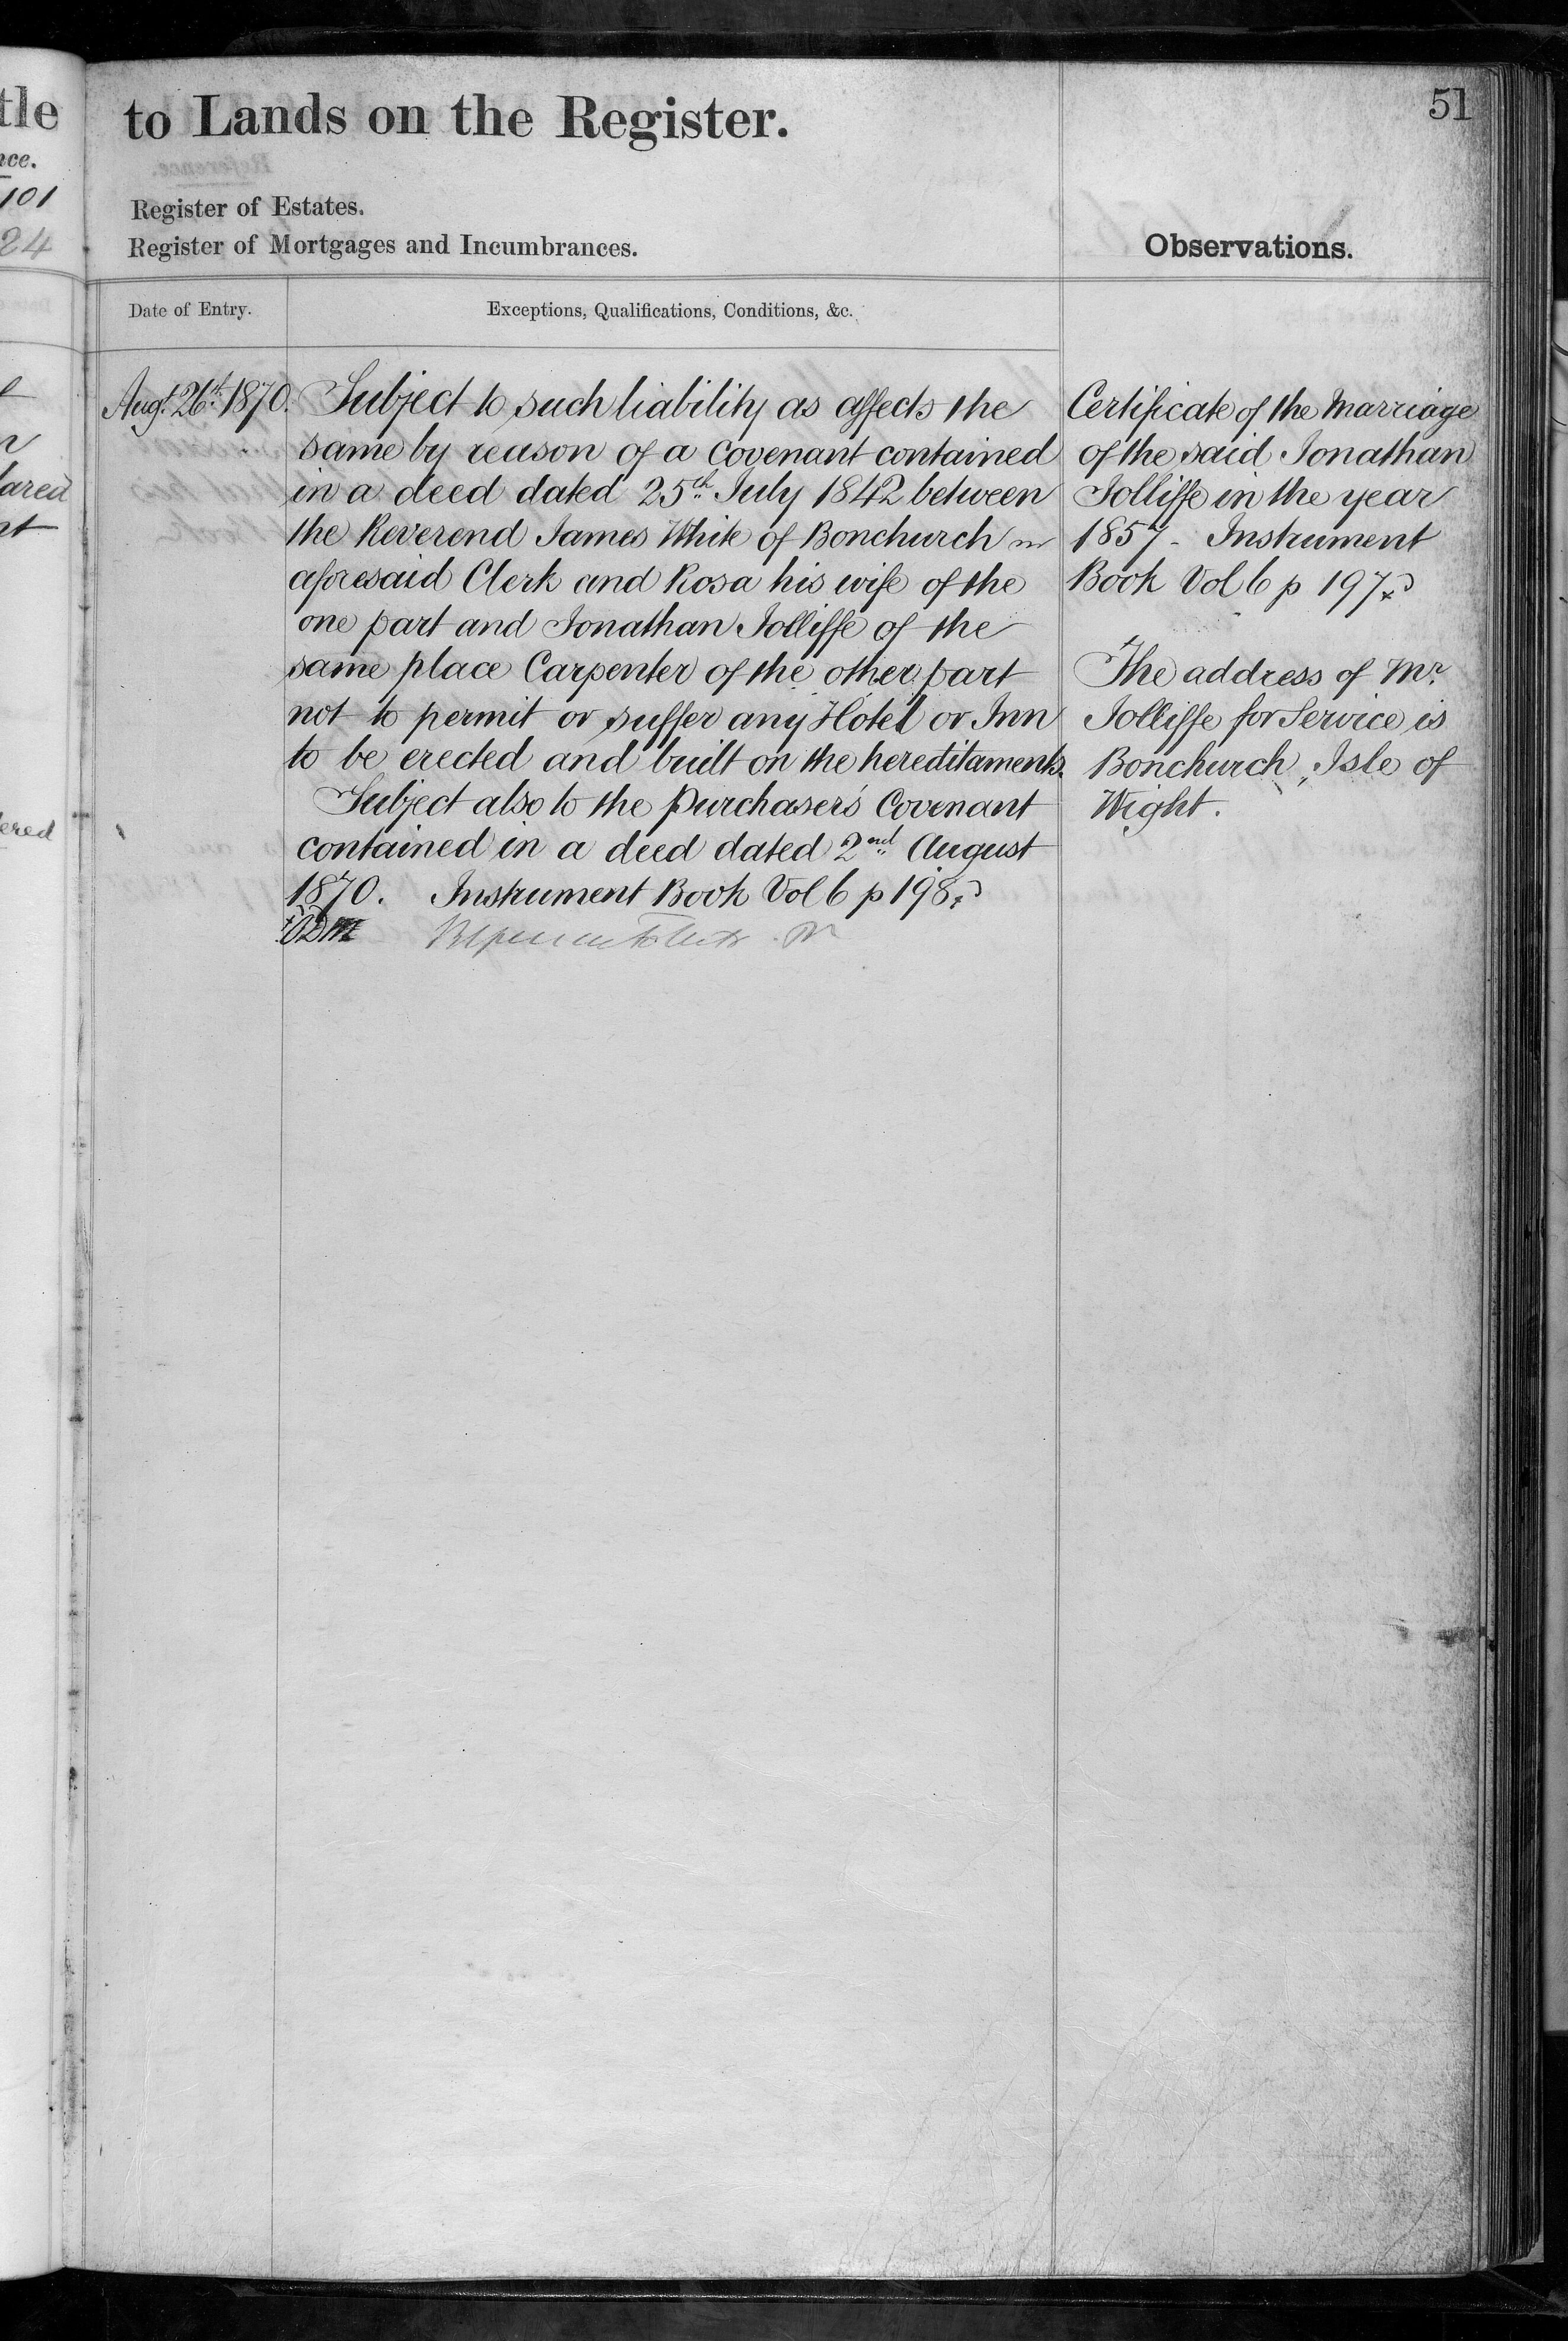 tle
nce.
101
24
ared
nt
ered
to Lands on the Register.
51
Register of Estates.
Register of Mortgages and Incumbrances.
Observations.
Date of Entry.
Exceptions, Qualifications, Conditions, &c.
Augt. 26th 1870.
Subject to such liability as affects the
same by reason of a Covenant contained
in a deed dated 25th July 1842 between
the Reverend James White of Bonchurch
aforesaid Clerk and Rosa his wife of the
one part and Jonathan Jolliffe of the
same place Carpenter of the other part
not to permit or suffer any Hotel or Inn
to be erected and built on the hereditaments.
Subject also to the Purchaser's Covenant
contained in a deed dated 2nd August
1870. Instrument Book Vol 6 p 198.
Certificate of the Marriage
of the said Jonathan
Jolliffe in the year
1857 - Instrument
Book Vol 6 p 197
The address of Mr.
Jolliffe for Service is
Bonchurch, Isle of
Wight.